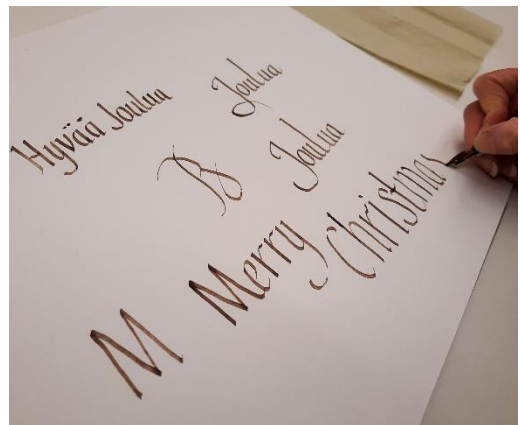 Hyvää Joulua
Joulua
B Joulua
M Merry Christmas